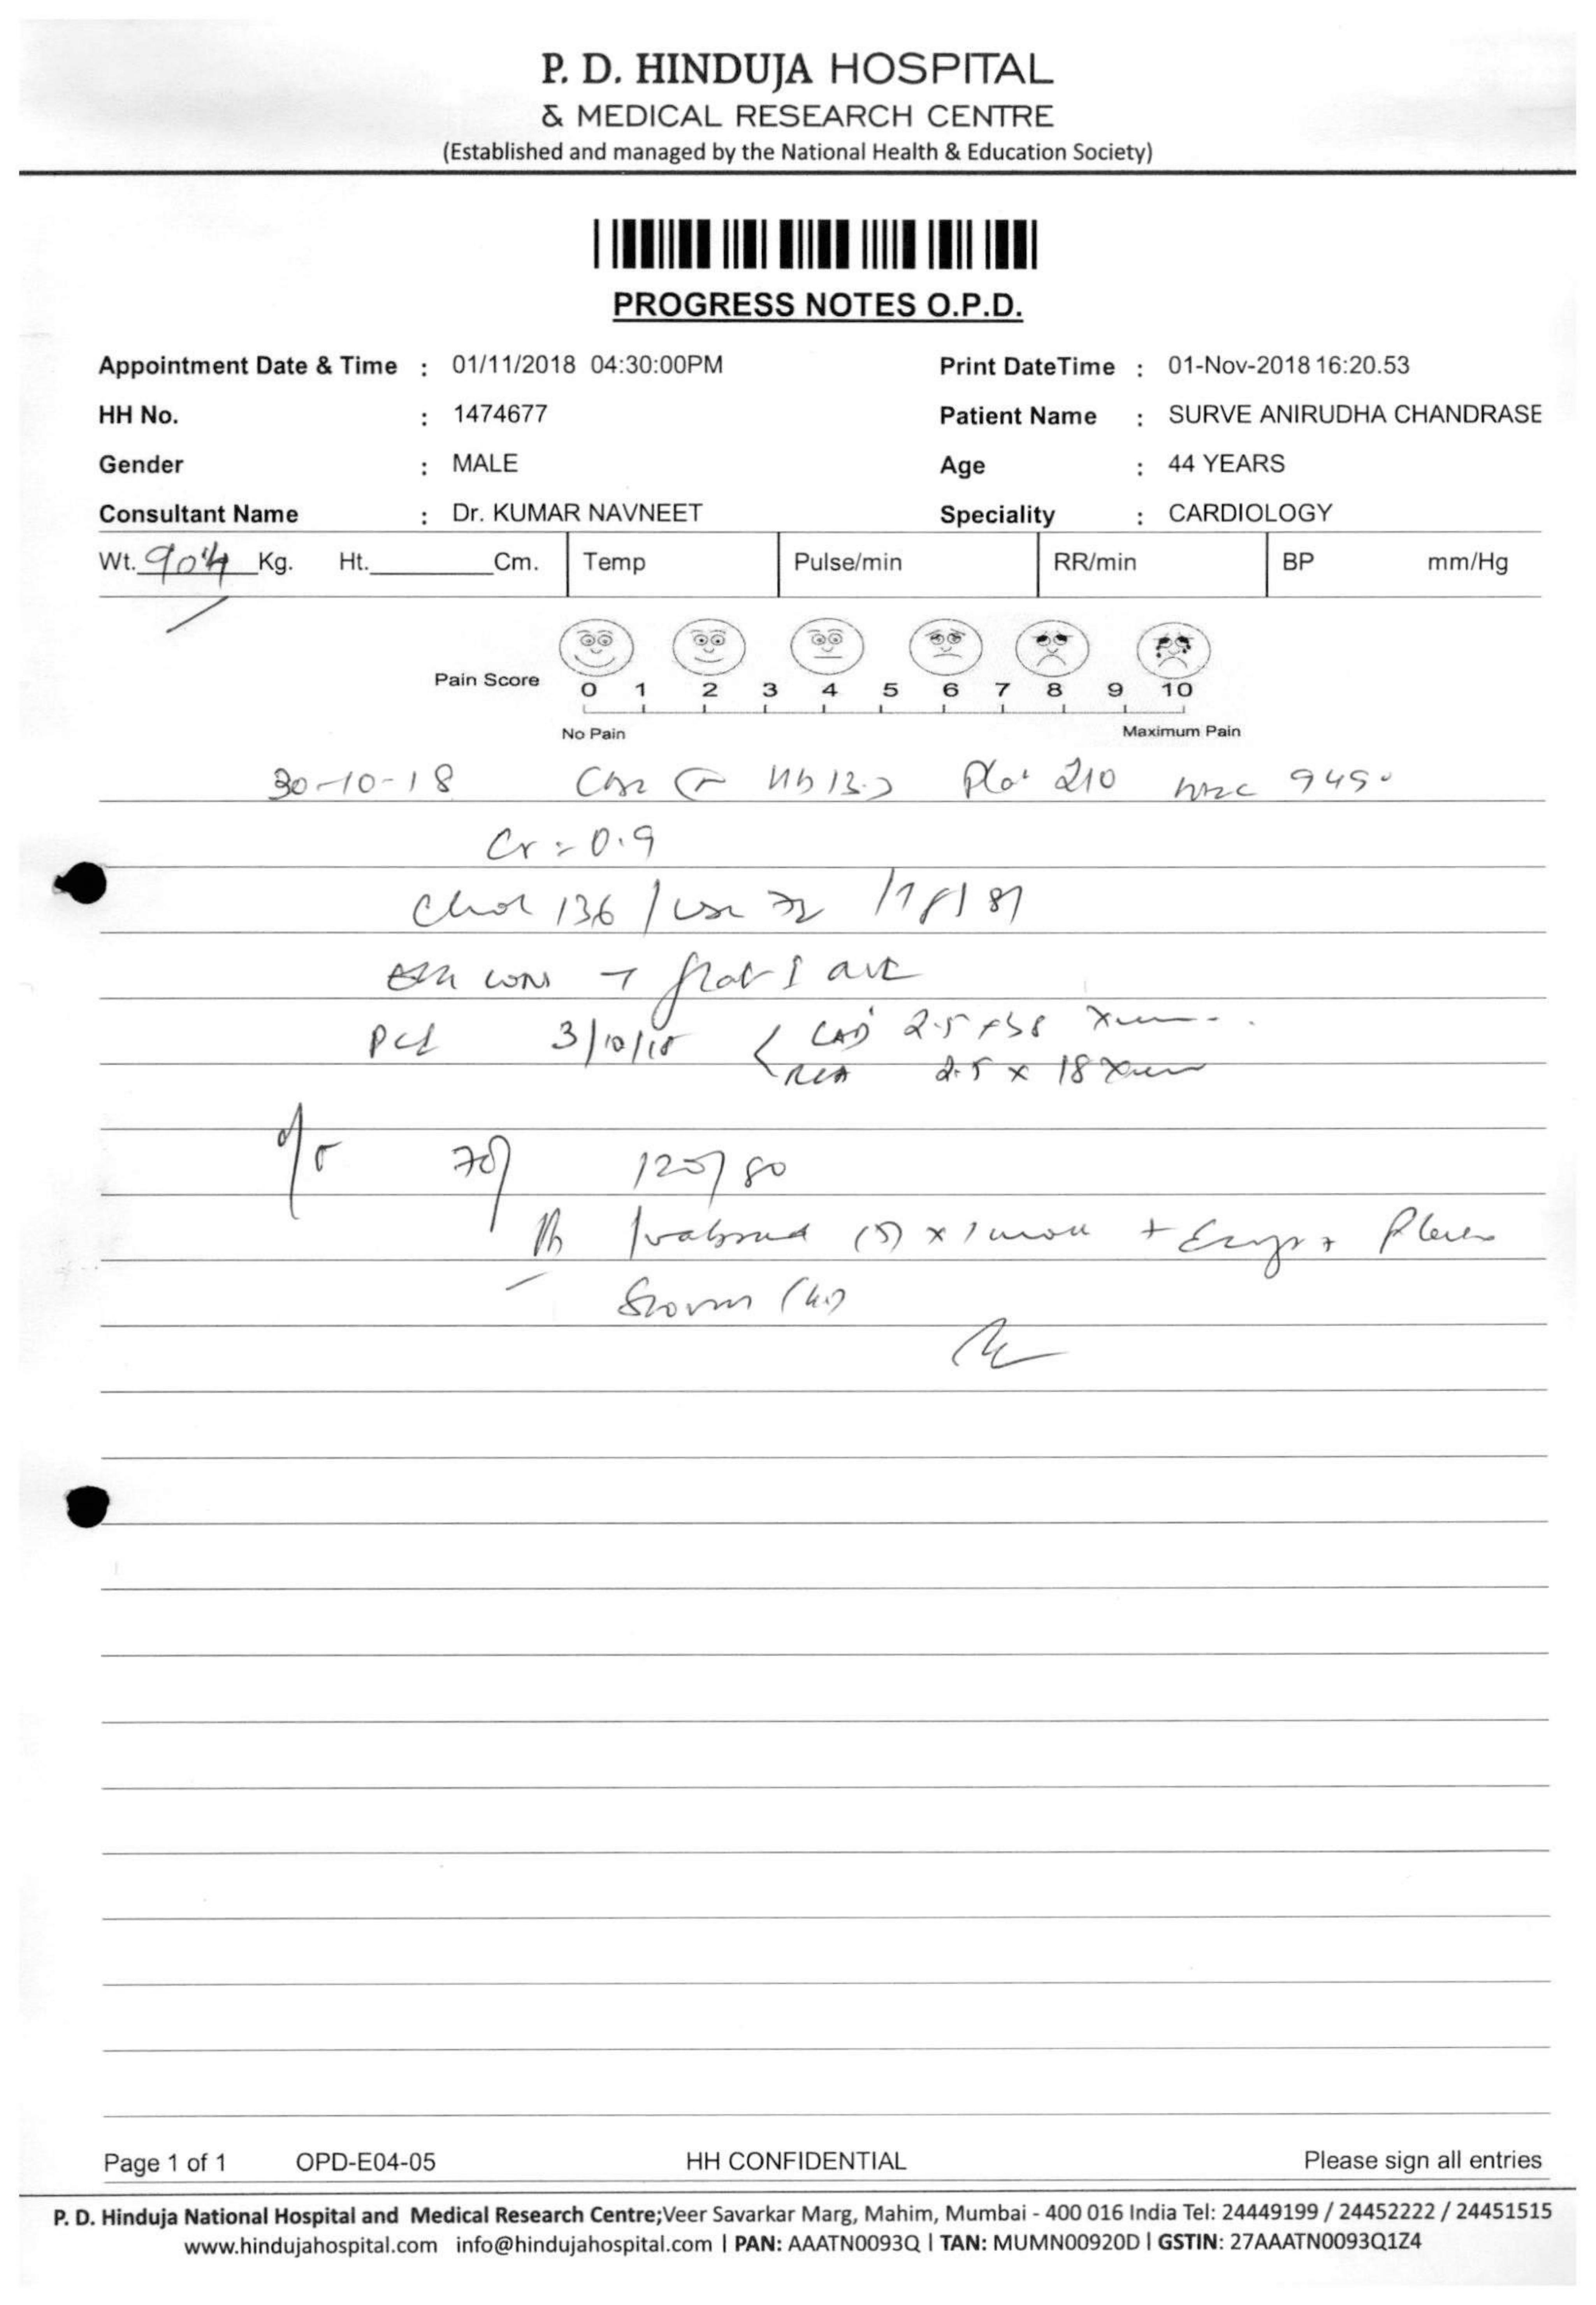 P. D. HINDUJA HOSPITAL
& MEDICAL RESEARCH CENTRE
(Established and managed by the National Health & Education Society)
PROGRESS NOTES O.P.D.
Appointment Date & Time : 01/11/2018 04:30:00PM Print DateTime : 01-Nov-2018 16:20.53
HH No. : 1474677 Patient Name : SURVE ANIRUDHA CHANDRASE
Gender : MALE Age : 44 YEARS
Consultant Name : Dr. KUMAR NAVNEET Speciality : CARDIOLOGY
Wt. Kg. Ht. Cm. Temp Pulse/min RR/min BP mm/Hg
Pain Score 0 1 2 3 4 5 6 7 8 9 10
No Pain Maximum Pain
30-10-18 Plat 210 9450
Cr = 0.9
Chol 136 /
PCI 3/10/18 LAD 2.5 x 38
RCA 2.5 x 18
120/80
Page 1 of 1 OPD-E04-05 HH CONFIDENTIAL Please sign all entries
P. D. Hinduja National Hospital and Medical Research Centre;Veer Savarkar Marg, Mahim, Mumbai - 400 016 India Tel: 24449199 / 24452222 / 24451515
www.hindujahospital.com info@hindujahospital.com | PAN: AAATN0093Q | TAN: MUMN00920D | GSTIN: 27AAATN0093Q1Z4